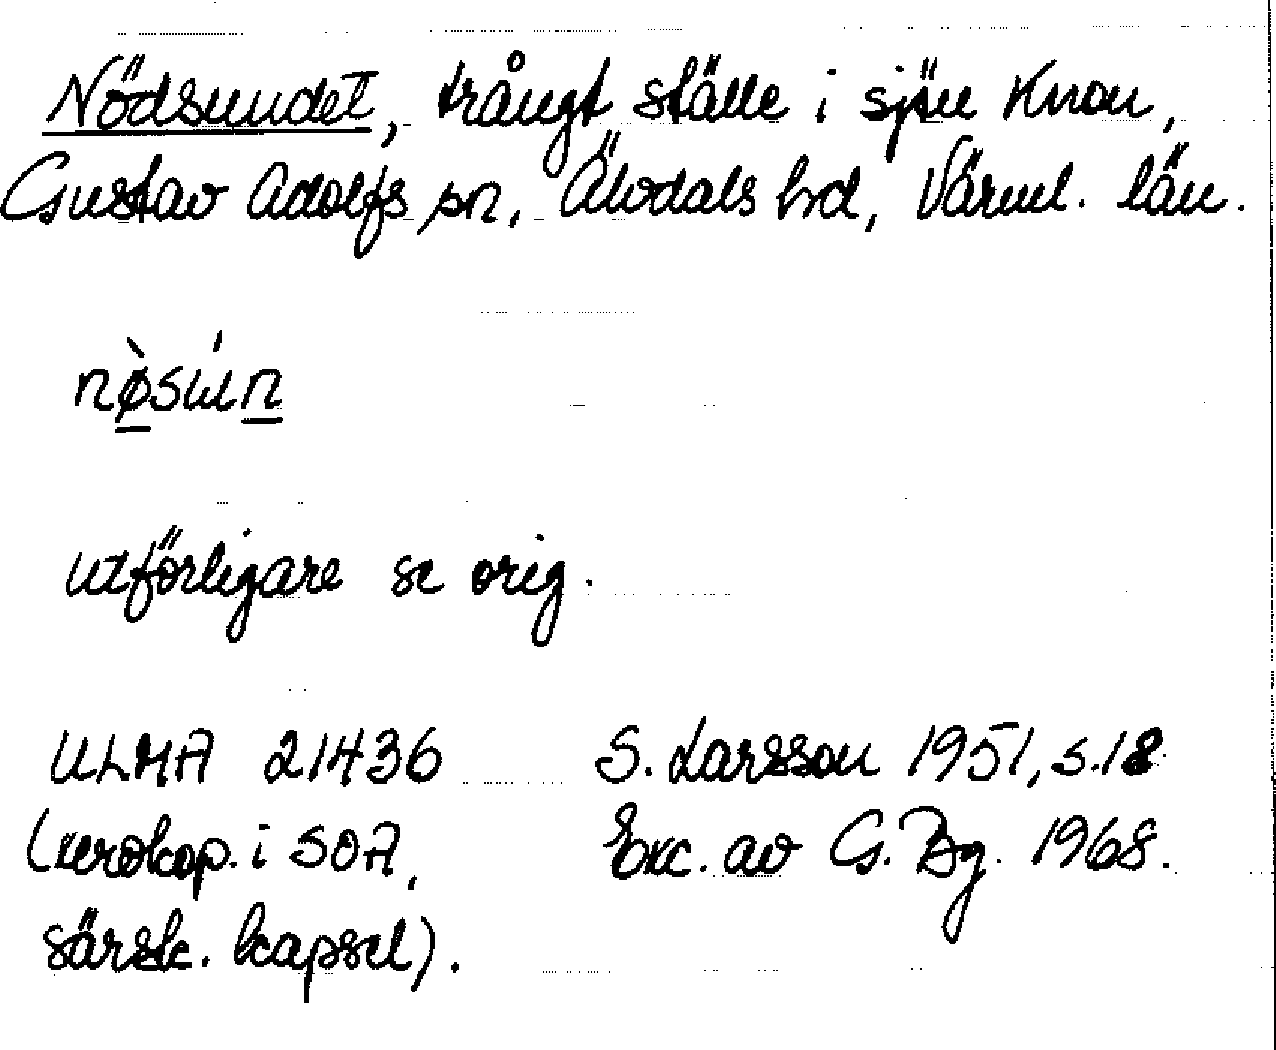 Nödsundet, trångt ställe i sjön Knon,
Gustav Adolfs sn, Älvdals hd, Värml. län.
nø̀sún
utförligare se orig.
ULMA 21436 S. Larsson 1951, s.18
(xerokop. i SOA, Exc. av G. Bg. 1968.
särsk. kapsel).